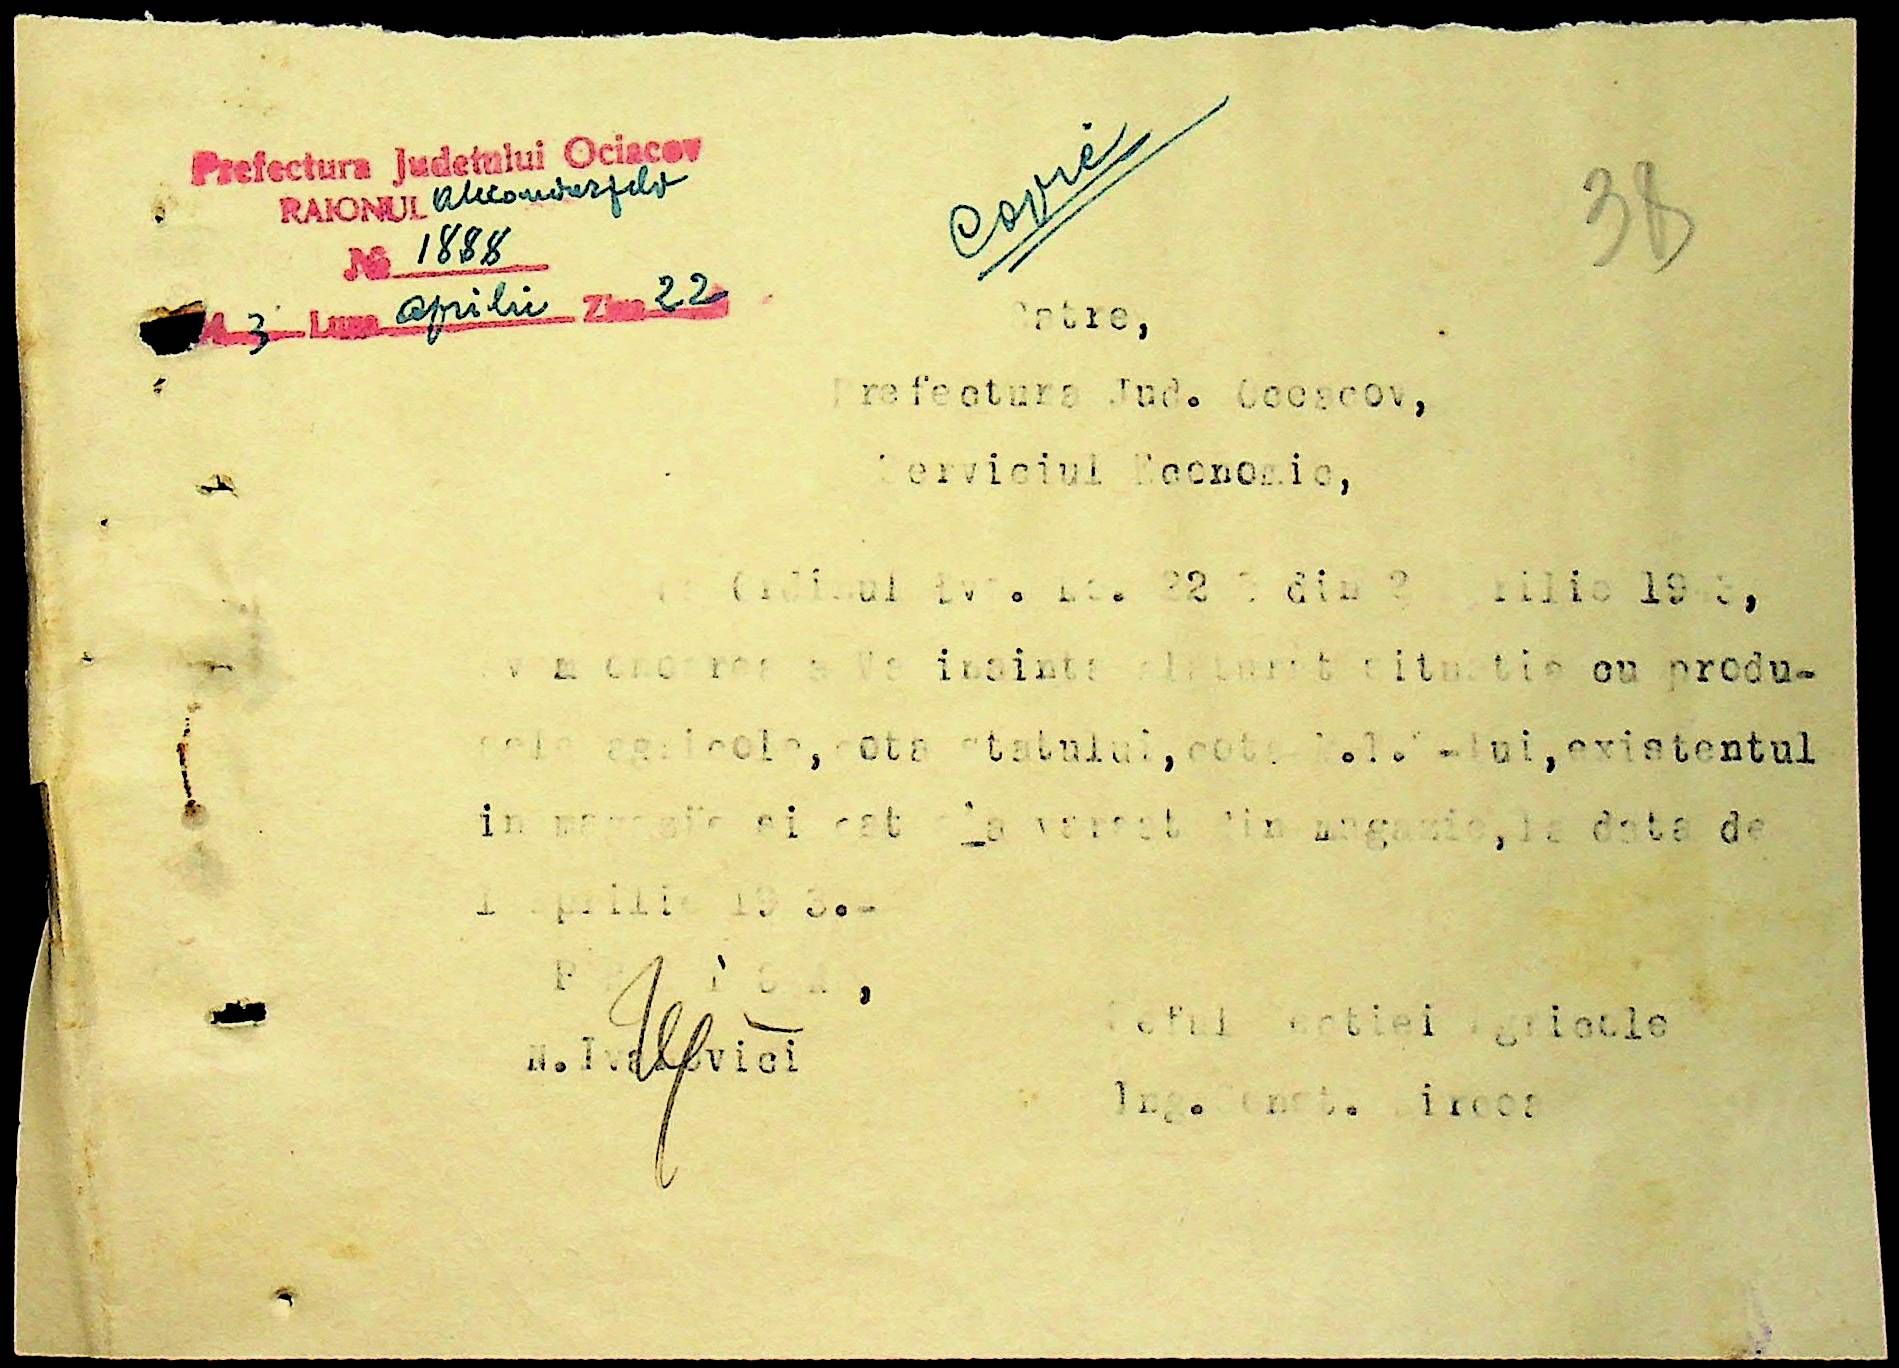 Prefectura Judetului Ociacov
RAIONUL Alexanderfeld
№ 1888
3 Luna aprilie Ziua 22
Copie
38
Catre,
Prefectura Jud. Oceacov,
Serviciul Economic,
Ordinul din aprilie 1943,
Avem onoarea a Va inainta alaturat situatie cu produ-
sele agricole, cota statului, cota -lui, existentul
in magazie si cat s'a varsat din magazie, la data de
1 Aprilie 1943.-
P R E T O R,
N. Ivanovici
Seful Sectiei Agricole
Ing. Const. Mircea